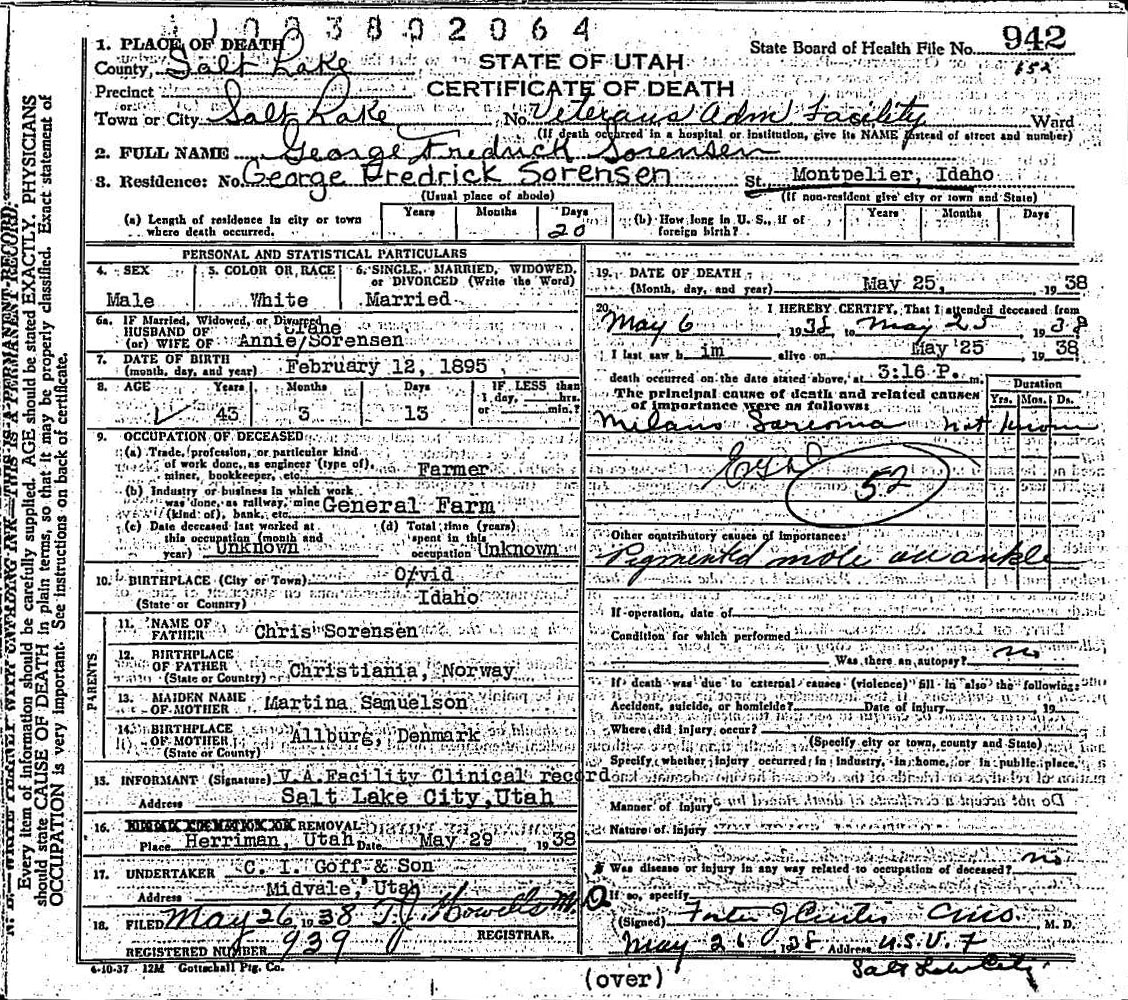 1003802064
1. PLACE OF DEATH
County, Salt Lake
STATE OF UTAH
State Board of Health File No. 942
152
Precinct
CERTIFICATE OF DEATH
or
Town or City Salt Lake No. Veterans Adm' Facility Ward
(If death occurred in a hospital or institution, give its NAME instead of street and number)
2. FULL NAME George Fredrick Sorensen
3. Residence: No. George Fredrick Sorensen St. Montpelier, Idaho
(Usual place of abode) (If non-resident give city or town and State)
(a) Length of residence in city or town where death occurred. Years Months Days 20 (b) How long in U. S., if of foreign birth? Years Months Days
PERSONAL AND STATISTICAL PARTICULARS
4. SEX 5. COLOR OR RACE 6. SINGLE, MARRIED, WIDOWED, or DIVORCED (Write the Word)
Male White Married
6a. IF Married, Widowed, or Divorced
HUSBAND OF Crane
(or) WIFE OF Annie/Sorensen
7. DATE OF BIRTH
(month, day, and year) February 12, 1895
8. AGE Years Months Days IF LESS than 1 day, hrs. or min.?
43 3 13
9. OCCUPATION OF DECEASED
(a) Trade, profession, or particular kind
of work done, as engineer (type of),
miner, bookkeeper, etc. Farmer
(b) Industry or business in which work
was done, as railway, mine
(kind of), bank, etc. General Farm
(c) Date deceased last worked at this occupation (month and year) Unknown
(d) Total time (years) spent in this occupation Unknown
10. BIRTHPLACE (City or Town) O/vid
(State or Country) Idaho
PARENTS
11. NAME OF FATHER Chris Sorensen
12. BIRTHPLACE OF FATHER (State or Country) Christiania, Norway
13. MAIDEN NAME OF MOTHER Martina Samuelson
14. BIRTHPLACE OF MOTHER (State or County) Allburg, Denmark
15. INFORMANT (Signature) V.A.Facility Clinical record
Address Salt Lake City,Utah
16. REMOVAL
Place Herriman, Utah Date May 29 1938
17. UNDERTAKER C. I. Goff & Son
Address Midvale, Utah
18. FILED May 26 1938 T.J. Howells M.
REGISTRAR.
REGISTERED NUMBER 939
4-10-37 12M Gottschall Ptg. Co.
19. DATE OF DEATH
(Month, day, and year) May 25, 1938
20. I HEREBY CERTIFY, That I attended deceased from
May 6 1938 to May 25 1938
I last saw h im alive on May 25 1938
death occurred on the date stated above, at 3:16 P. m.
The principal cause of death and related causes
of importance were as follows: Duration Yrs. Mos. Ds.
Melano Sarcoma not known
52
Other contributory causes of importance:
Pigmented mole on ankle
If operation, date of
Condition for which performed
Was there an autopsy? no
If death was due to external causes (violence) fill in also the following:
Accident, suicide, or homicide? Date of injury 19
Where did injury occur?
(Specify city or town, county and State)
Specify whether injury occurred in industry, in home, or in public place.
Manner of injury
Nature of injury
Was disease or injury in any way related to occupation of deceased? no
If so, specify
(Signed) Foster J Curtis CMO. M. D.
May 26 1938 Address U.S.V.F
Salt Lake City
(over)
Every item of information should be carefully supplied. AGE should be stated EXACTLY. PHYSICIANS
should state CAUSE OF DEATH in plain terms, so that it may be properly classified. Exact statement of
OCCUPATION is very important. See instructions on back of certificate.
N. B.—WRITE PLAINLY WITH UNFADING INK—THIS IS A PERMANENT RECORD.